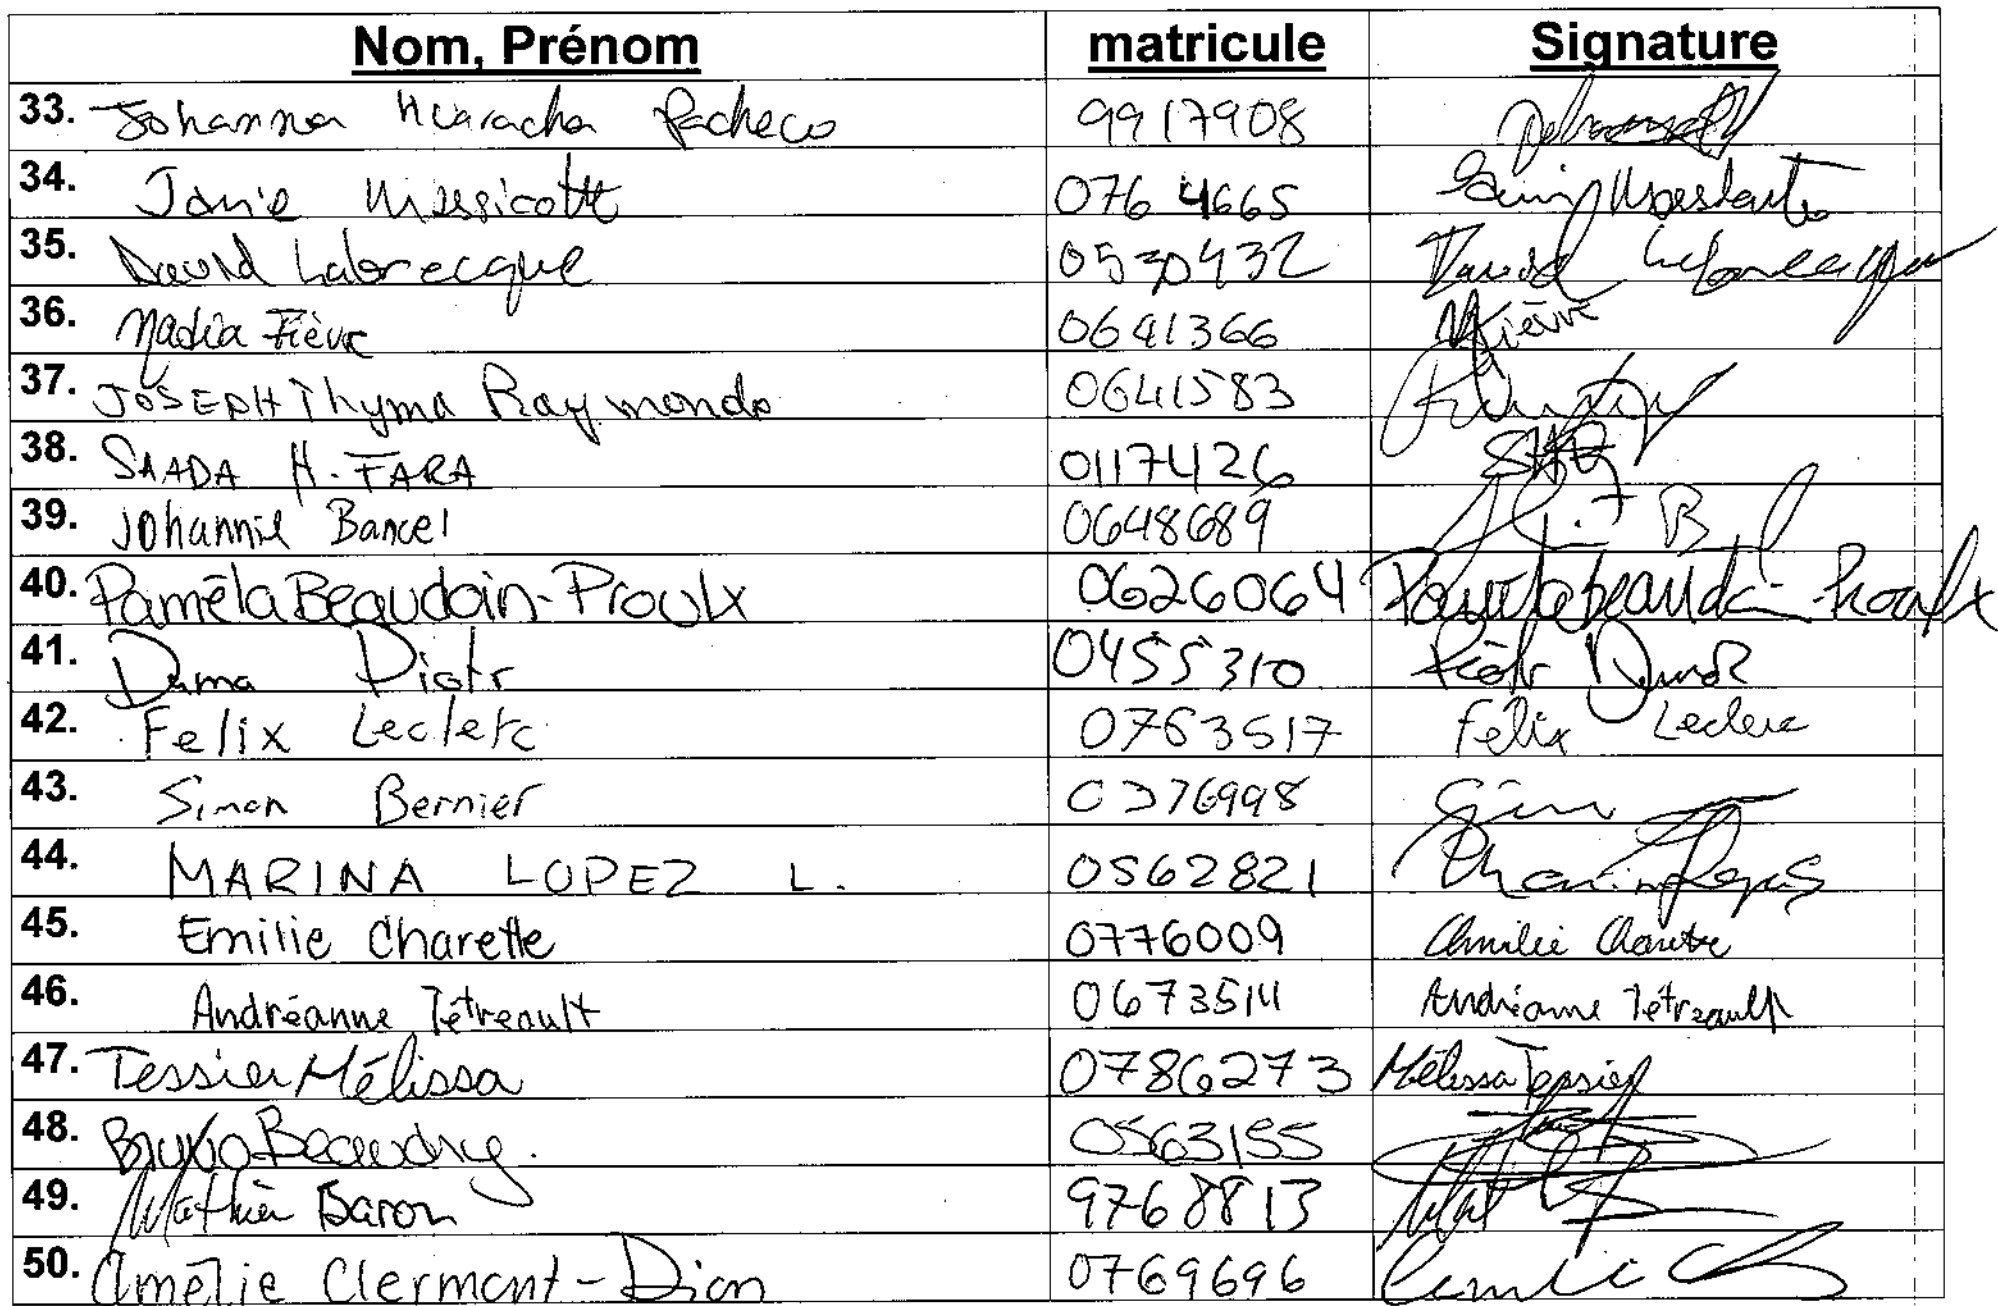 Nom, Prénom matricule Signature
33. Johanna Huaracha Pacheco 9917908
34. Janie Massicotte 0764665
35. David Labrecque 0530432 David Labrecque
36. Nadia Fièvre 0641366 NFièvre
37. JOSEPH Thyma Raymonde 0641583
38. SAADA H. FARA 01174126
39. Johannie Bancel 0648689
40. Paméla Beaudoin-Proulx 0626064 Paméla beaudoin-Proulx
41. Duma Piotr 0455310 Piotr Duma
42. Felix Leclerc 0763517 Félix Leclerc
43. Simon Bernier 0376998
44. MARINA LOPEZ L. 0562821
45. Emilie Charette 0776009 Emilie Charette
46. Andréanne Tétreault 0673514 Andréanne Tétreault
47. Tessier Mélissa 0786273 Mélissa Tessier
48. Bruno Beaudry. 0563155
49. Mathieu Baron 9768813
50. Amélie Clermont-Dion 0769696